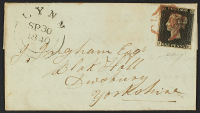 LYNN
SP 30
1840
J. Ingham Esqr
Blake Hall
Dewsbury
Yorkshire